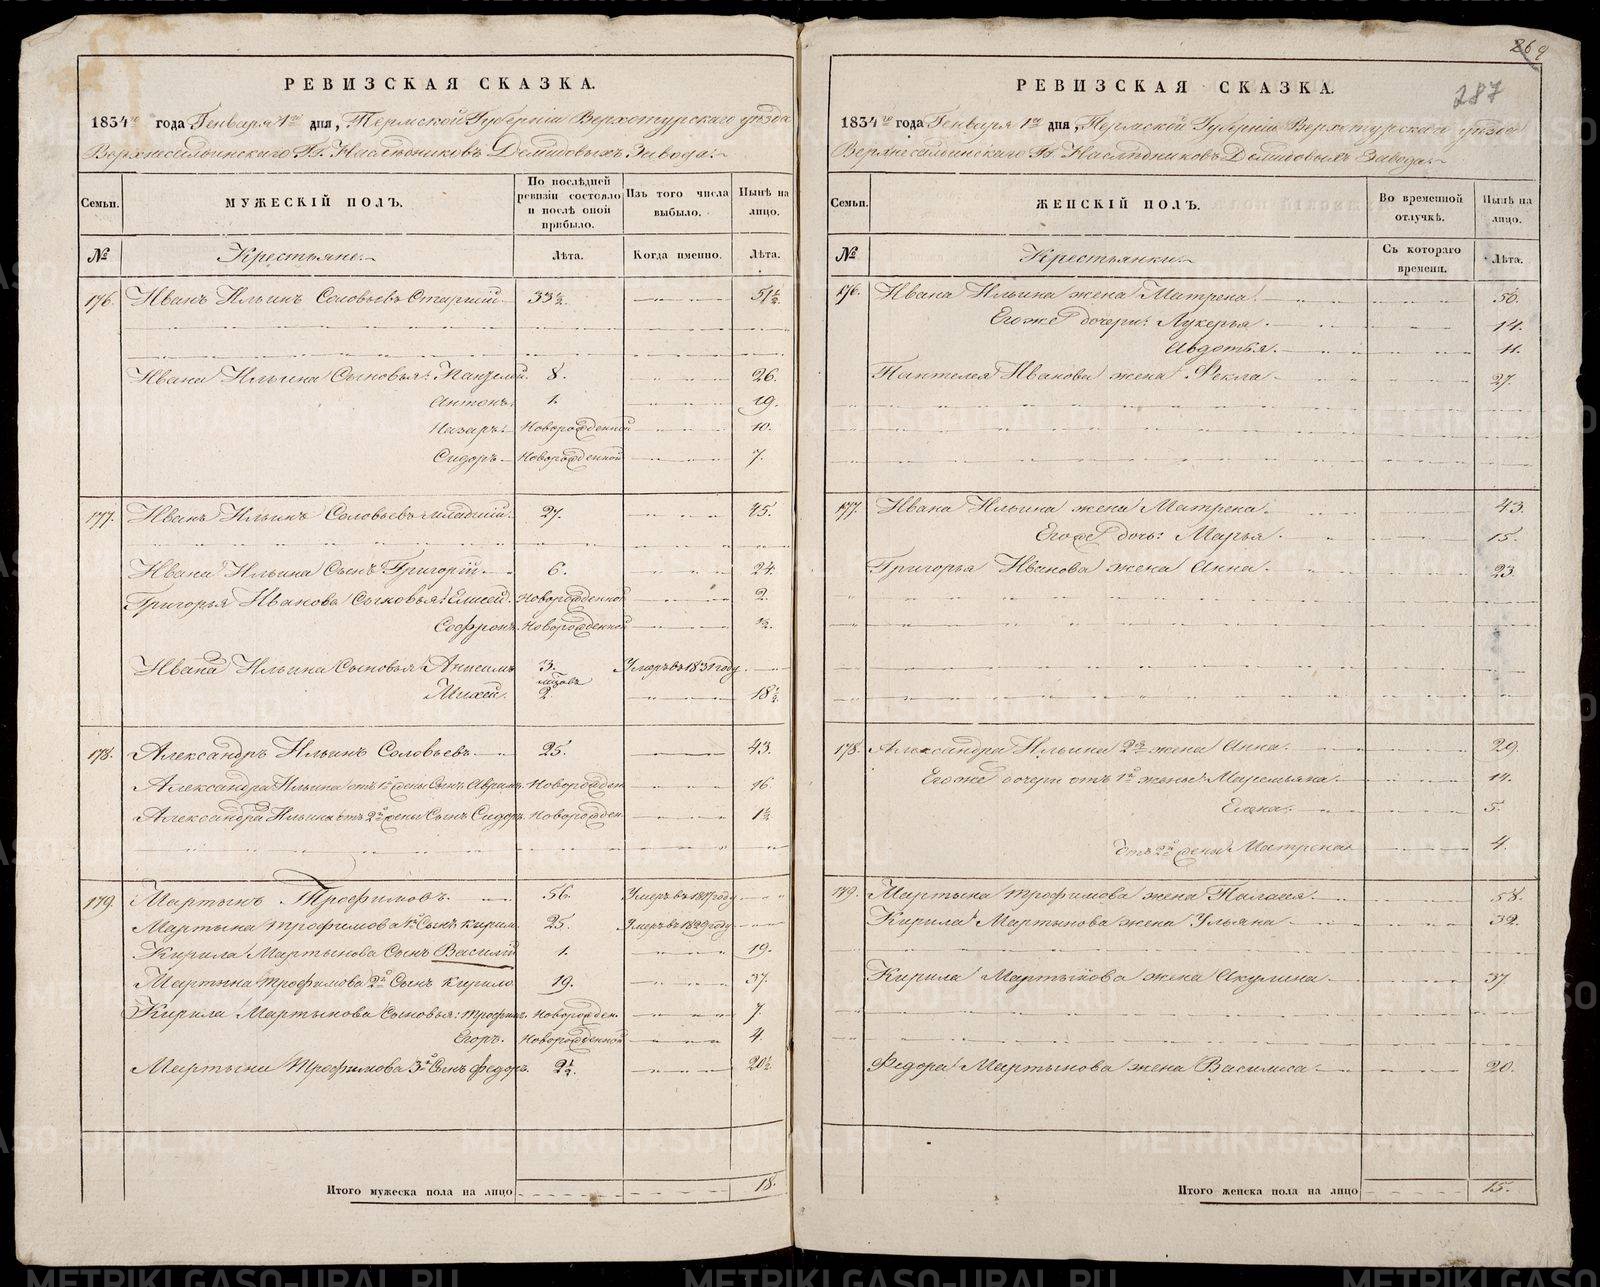 РЕВИЗСКАЯ СКАЗКА.
1834го года Генваря 1го дня, Пермской Губерніи Верхотурскаго уезда
Г. Наслѣдниковъ Демидовыхъ Завода:
Семьи.
МУЖЕСКІЙ ПОЛЪ.
По послѣдней ревизіи состояло и послѣ оной прибыло.
Изъ того числа выбыло.
Нынѣ на лицо.
№
Крестьяне.
Лѣта.
Когда именно.
Лѣта.
176. Иванъ Ильинъ Соловьевъ Старшій 33½ 51½.
Ивана Ильина Сыновья: Пантелей. 8. 26.
Антонъ. 1. 19.
Назаръ. Новорожденной 10.
Сидоръ Новорожденной 7.
177. Иванъ Ильинъ Соловьевъ младшій. 27. 45.
Ивана Ильина Сынъ Григорій 6. 24.
Григорья Иванова Сыновья: Елисей. Новорожденной 2.
Софронъ. Новорожденной ½.
Ивана Ильина Сыновья Анисимъ 3. Умеръ въ 1831 году
Михей. 2 18½.
178. Александръ Ильинъ Соловьевъ 25. 43.
Александра Ильина отъ 1й жены Сынъ Новорожден 16.
Александра Ильина отъ 2й жены Сынъ Сидоръ. Новорожден. 1½
179. Мартынъ Трофимовъ. 56. Умеръ въ 1817 году
Мартына Трофимова 1й Сынъ Кирило. 25. Умеръ въ 1829 году
Кирила Мартынова Сынъ Василій 1. 19.
Мартына Трофимова 2й Сынъ Кирило 19. 37.
Кирила Мартынова Сыновья: Трофимъ. Новорожден. 7.
Егоръ. Новорожденной 4.
Мартына Трофимова 3й Сынъ Федоръ. 2½. 20½.
Итого мужеска пола на лицо 18.
269
287
РЕВИЗСКАЯ СКАЗКА.
1834го года Генваря 1го дня, Пермской Губерніи Верхотурскаго уезда
Г. Наслѣдниковъ Демидовыхъ Завода:
Семьи.
ЖЕНСКІЙ ПОЛЪ.
Во временной отлучкѣ.
Нынѣ на лицо.
№
Крестьянки.
Съ котораго времени.
Лѣта.
176. Ивана Ильина жена Матрена. 50.
Его же дочери: Лукерья. 14.
Авдотья. 11.
Пантелея Иванова жена Фекла 27.
177. Ивана Ильина жена Матрена. 43.
Его же дочь: Марья. 15.
Григорья Иванова жена Анна. 23.
178. Александра Ильина 2я жена Анна. 29.
Его же дочери отъ 1й жены: 14.
Елена. 5.
Отъ 2й жены Матрена 4.
179. Мартына Трофимова жена Палагея. 58.
Кирила Мартынова жена Ульяна. 39.
Кирила Мартынова жена Акулина. 37.
Федора Мартынова жена Василиса. 20.
Итого женска пола на лицо 15.
METRIKI.GASO-URAL.RU